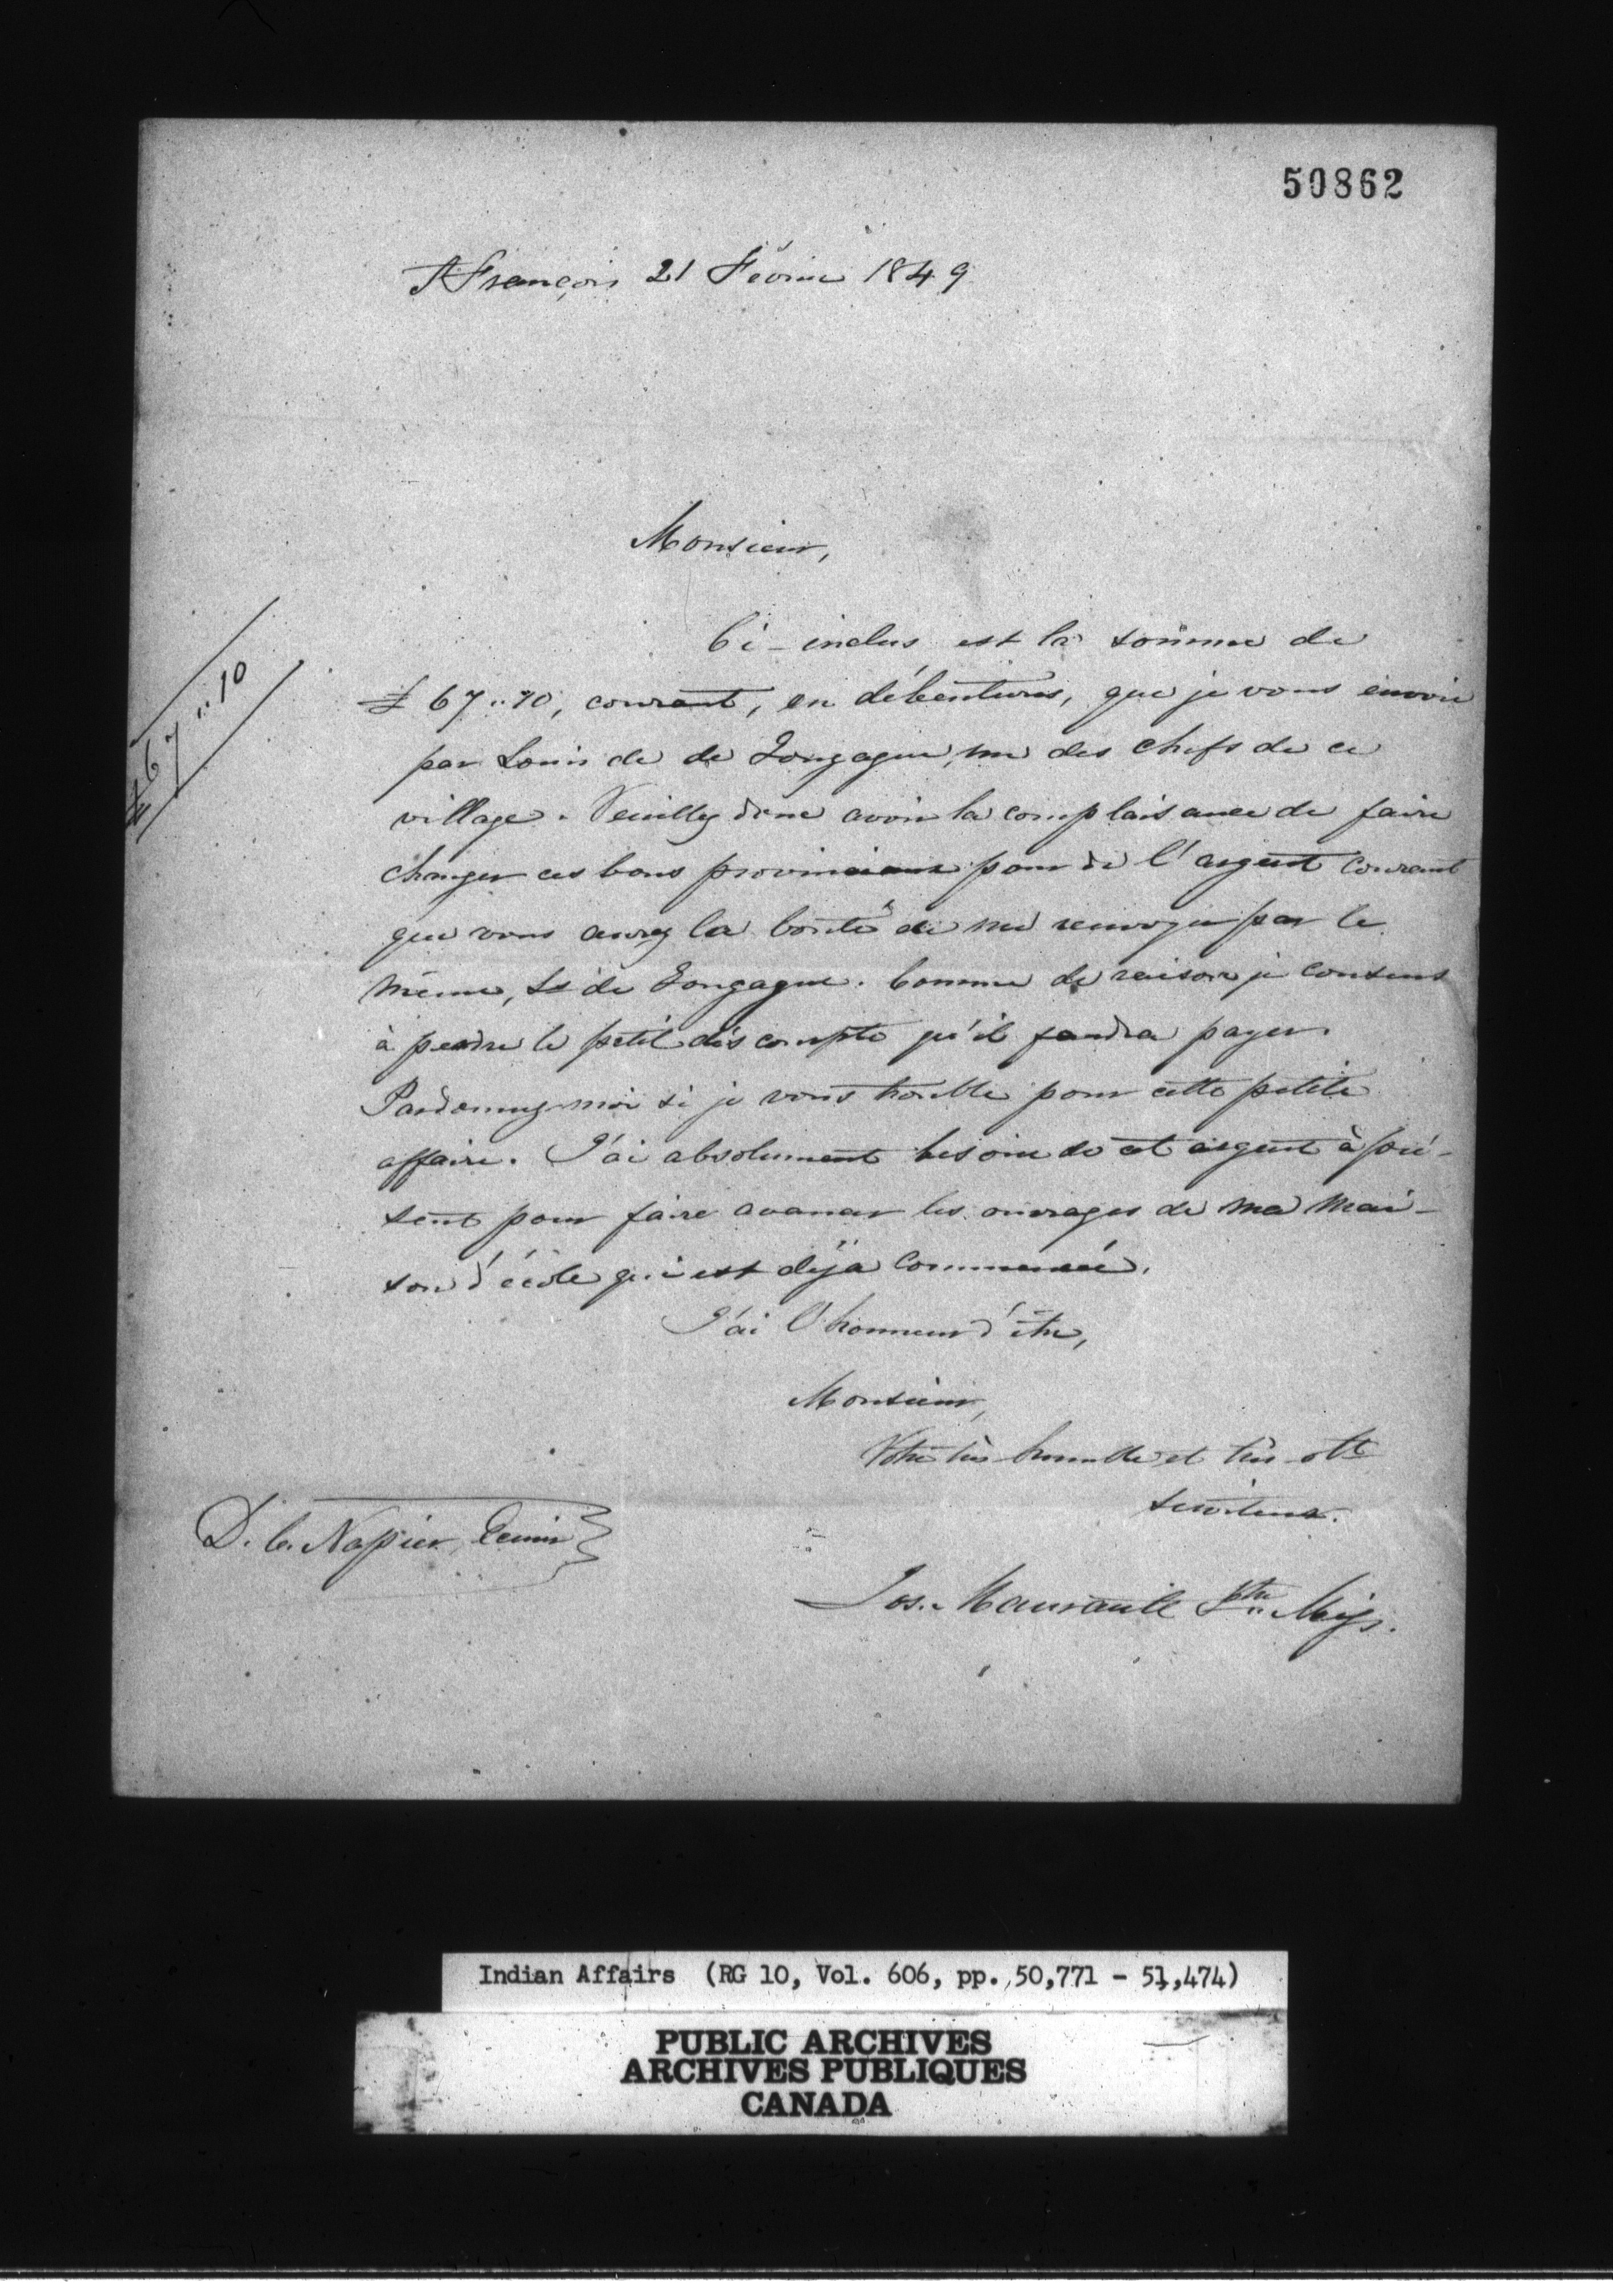 50862
St François 21 Février 1849
Monsieur,
Ci-inclus est la somme de
£ 67 " 10, courant, en débentures, que je vous envoie
£67 " 10
par Louis de de Gonzague, un des chefs de ce
village. Veuillez donc avoir la complaisance de faire
changer ces bons provinciaux pour de l'argent courant
que vous aurez la bonté de me renvoyer par le
même, Ls de Gonzague. Comme de raison je consens
à perdre le petit discompte qu'il faudra payer.
Pardonnez-moi si je vous trouble pour cette petite
affaire. J'ai absolument besoin de cet argent à pré-
sent pour faire avancer les ouvrages de ma mai-
son d'école qui est déjà commencée.
J'ai l'honneur d'être,
Monsieur,
Votre très humble et très obt
serviteur.
D. C. Napier,
Jos. Maurault Ptre Miss.
Indian Affairs (RG 10, Vol. 606, pp. 50,771 - 51,474)
PUBLIC ARCHIVES
ARCHIVES PUBLIQUES
CANADA